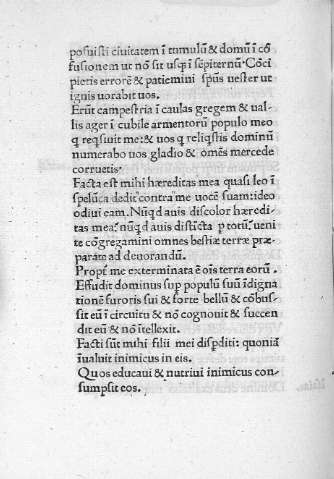 posuisti ciuitatem ī tumulū & domū ī cō
fusionem ut nō sit usq; ī sēpiternū· Cōci
pietis errorē & patiemini spūs uester ut
ignis uorabit uos.
Erūt campestria ī caulas gregem & ual
lis ager ī cubile armentorū populo meo
q reqsiuit me: & uos q reliqstis dominū
numerabo uos gladio & omēs mercede
corruetis·
Facta est mihi hæreditas mea quasi leo ī
spelūca dedit contra me uocē suam: ideo
odiui eam. Nūqd auis discolor hæredi
tas mea? nūqd auis distīcta p totū? ueni
te cōgregamini omnes bestiæ terræ præ-
parate ad deuorandū.
Propt me exterminata ē oīs terra eorū.
Effudit dominus sup populū suū īdigna
tionē furoris sui & forte bellū & cōbus-
sit eū ī circuitu & nō cognouit & succen
dit eū & nō ītellexit.
Facti sūt mihi filii mei dispditi: quoniā
īualuit inimicus in eis.
Quos educaui & nutriui inimicus con-
sumpsit eos.